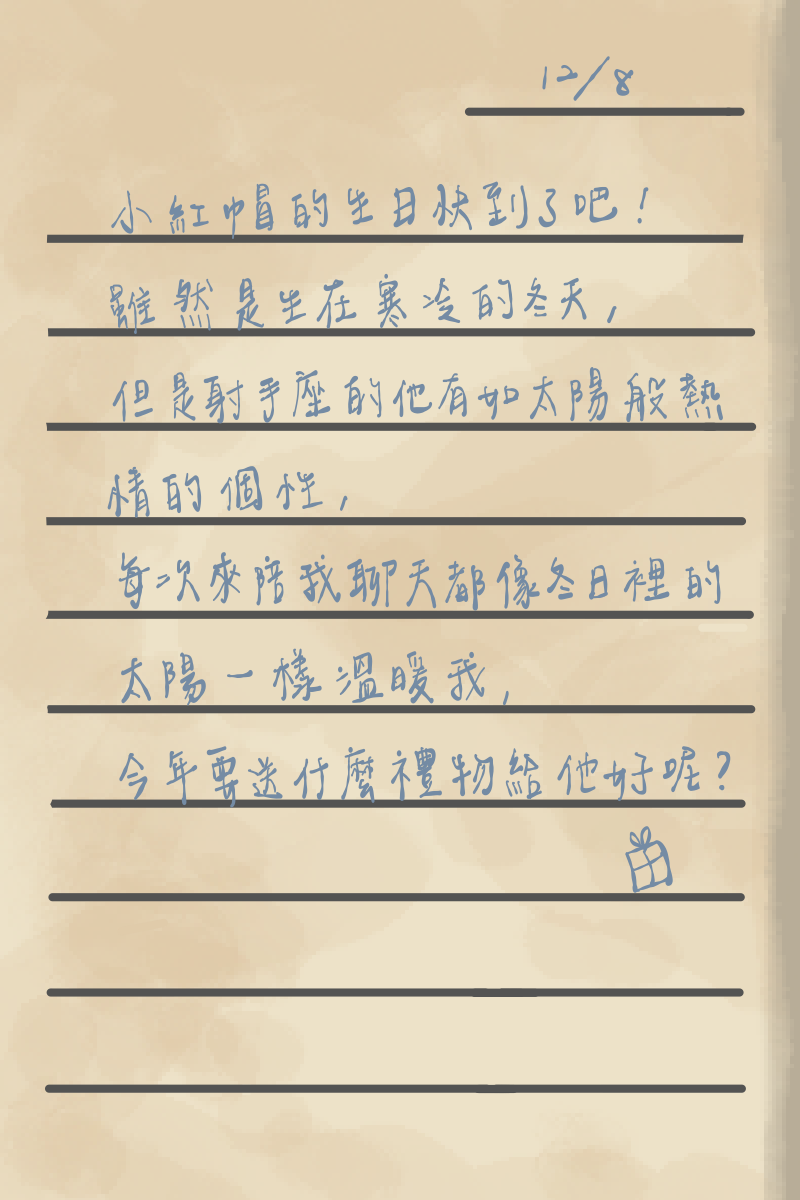 12/8
小紅帽的生日快到了吧！
雖然是生在寒冷的冬天，
但是射手座的他有如太陽般熱
情的個性，
每次來陪我聊天都像冬日裡的
太陽一樣溫暖我，
今年要送什麼禮物給他好呢？